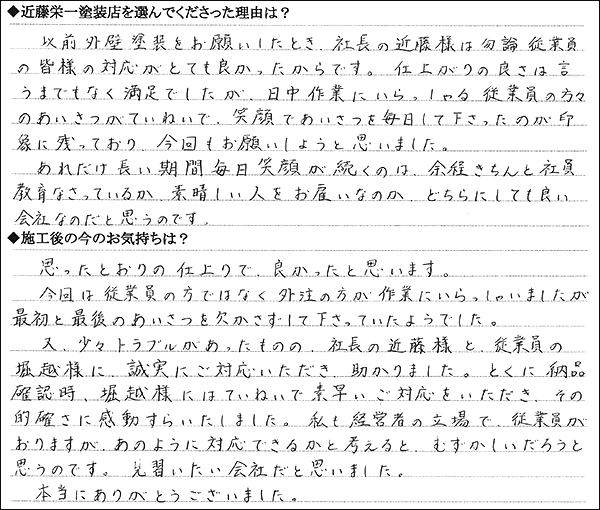 ◆近藤栄一塗装店を選んでくださった理由は？
以前外壁塗装をお願いしたとき、社長の近藤様は勿論従業員
の皆様の対応がとても良かったからです。仕上がりの良さは言
うまでもなく満足でしたが、日中作業にいらっしゃる従業員の方々
のあいさつがていねいで、笑顔であいさつを毎日して下さったのが印
象に残っており、今回もお願いしようと思いました。
あれだけ長い期間毎日笑顔が続くのは、余程きちんと社員
教育なさっているか、素晴しい人をお雇いなのか、どちらにしても良い
会社なのだと思うのです。
◆施工後の今のお気持ちは？
思ったとおりの仕上りで、良かったと思います。
今回は従業員の方ではなく外注の方が作業にいらっしゃいましたが
最初と最後のあいさつを欠かさずして下さっていたようでした。
又、少々トラブルがあったものの、社長の近藤様と、従業員の
堀越様に、誠実にご対応いただき、助かりました。とくに納品
確認時、堀越様にはていねいで素早いご対応をいただき、その
的確さに感動すらいたしました。私も経営者の立場で、従業員が
おりますが、あのように対応できるかと考えると、むずかしいだろうと
思うのです。見習いたい会社だと思いました。
本当にありがとうございました。